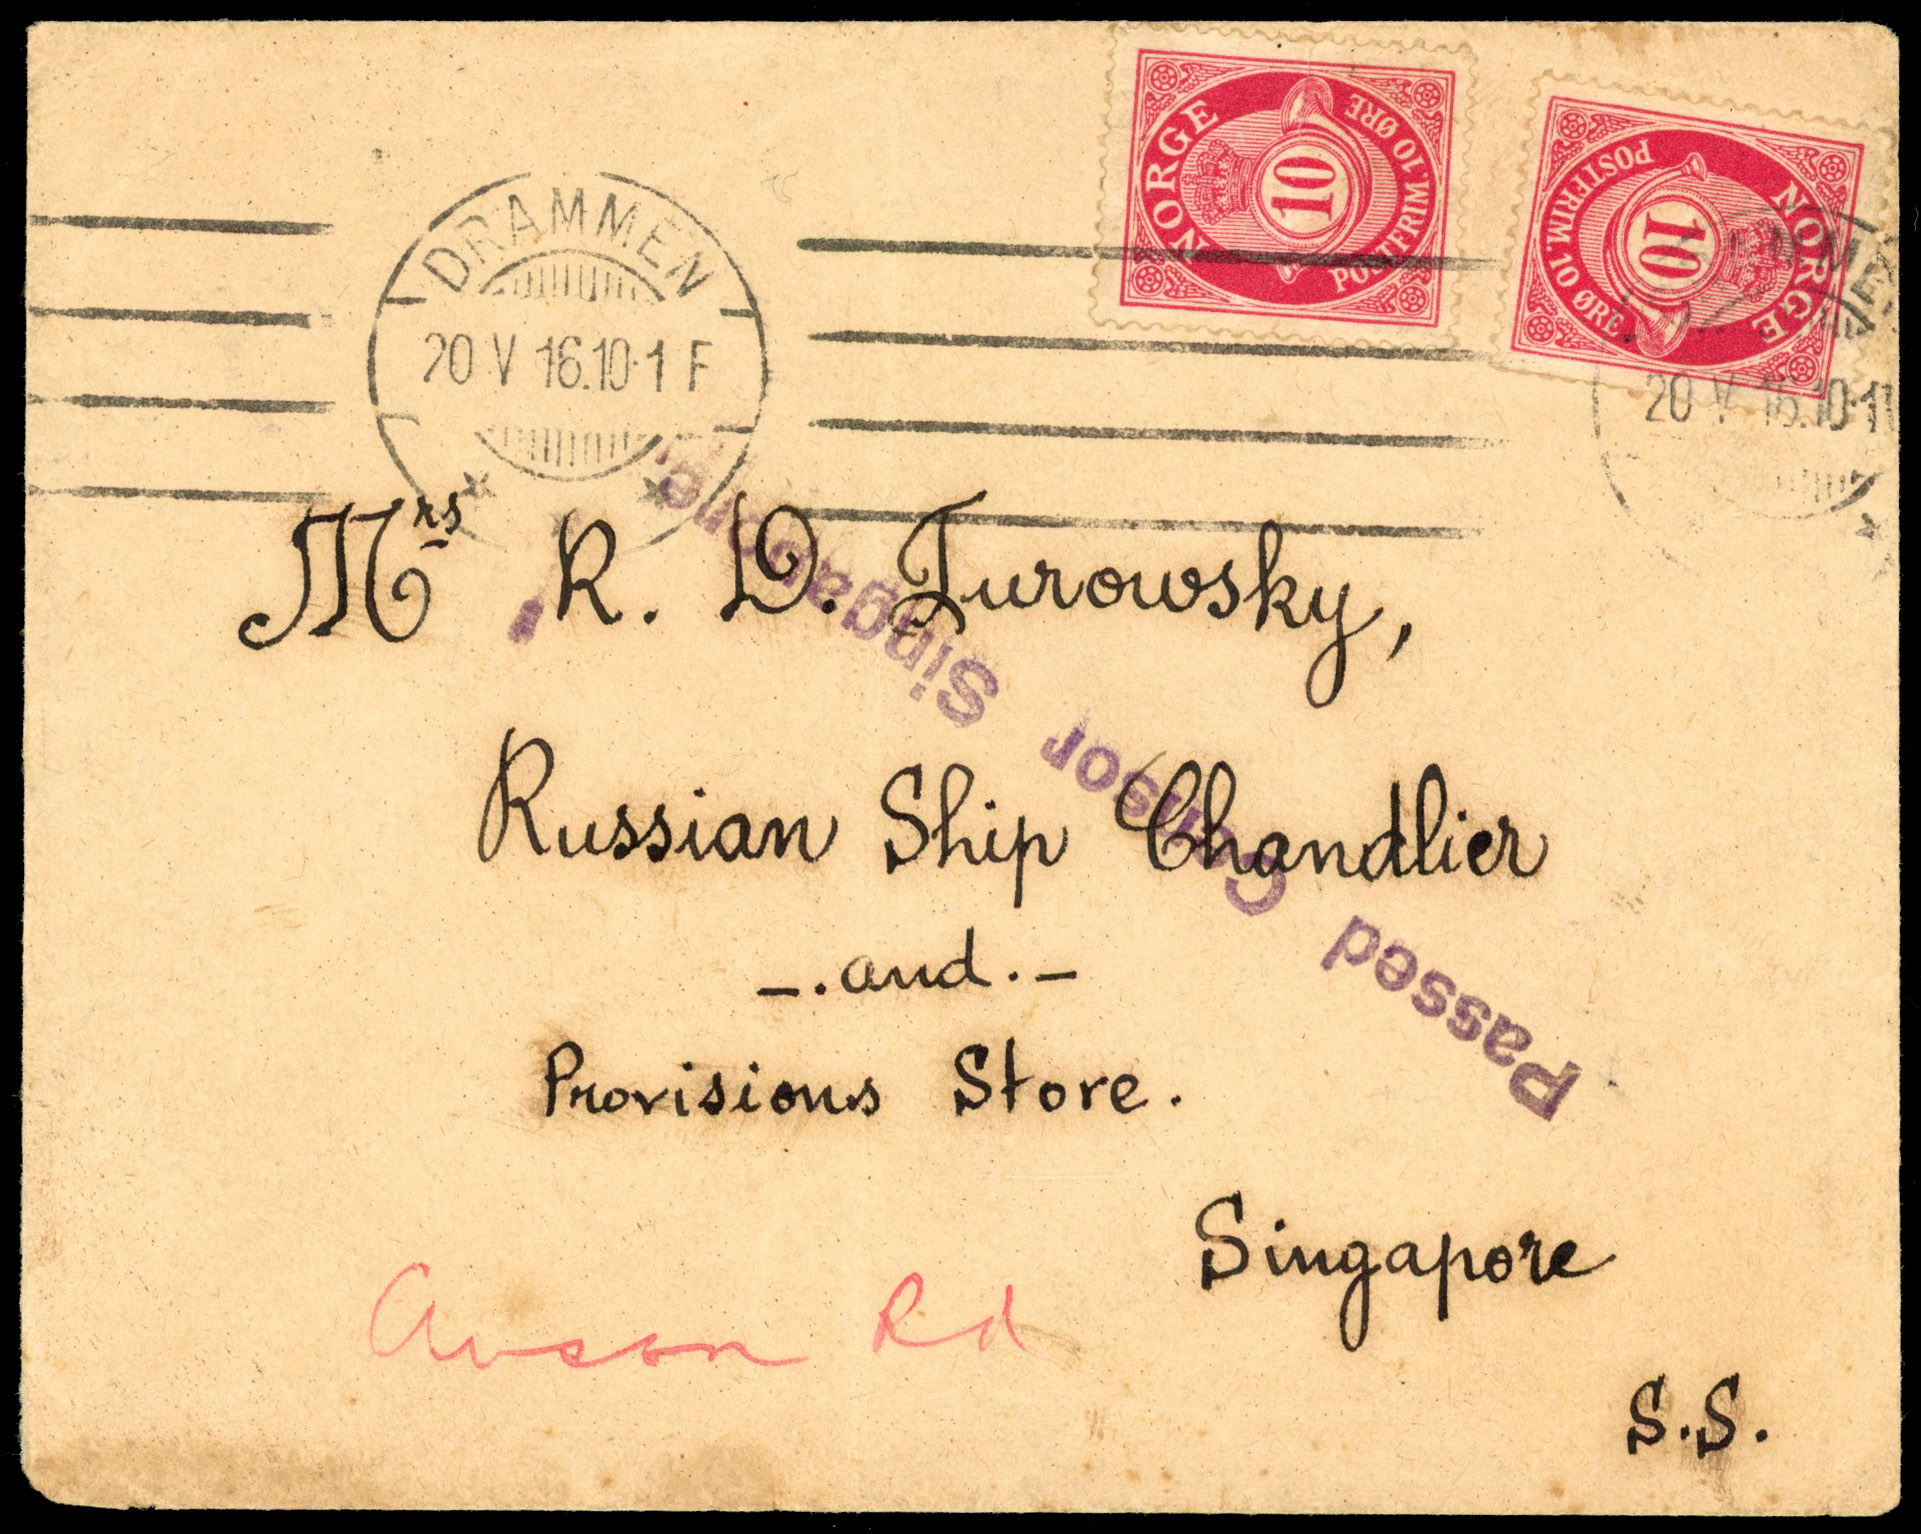 NORGE
10
POSTFRIM. 10 ØRE
NORGE
10
POSTFRIM. 10 ØRE
DRAMMEN
20 V 16.10-1 F
20 V 16.10-1
Mrs R. D. Turowsky,
Russian Ship Chandlier
-. and .-
Provisions Store.
Singapore
S.S.
Anson Rd
Passed Censor Singapore.